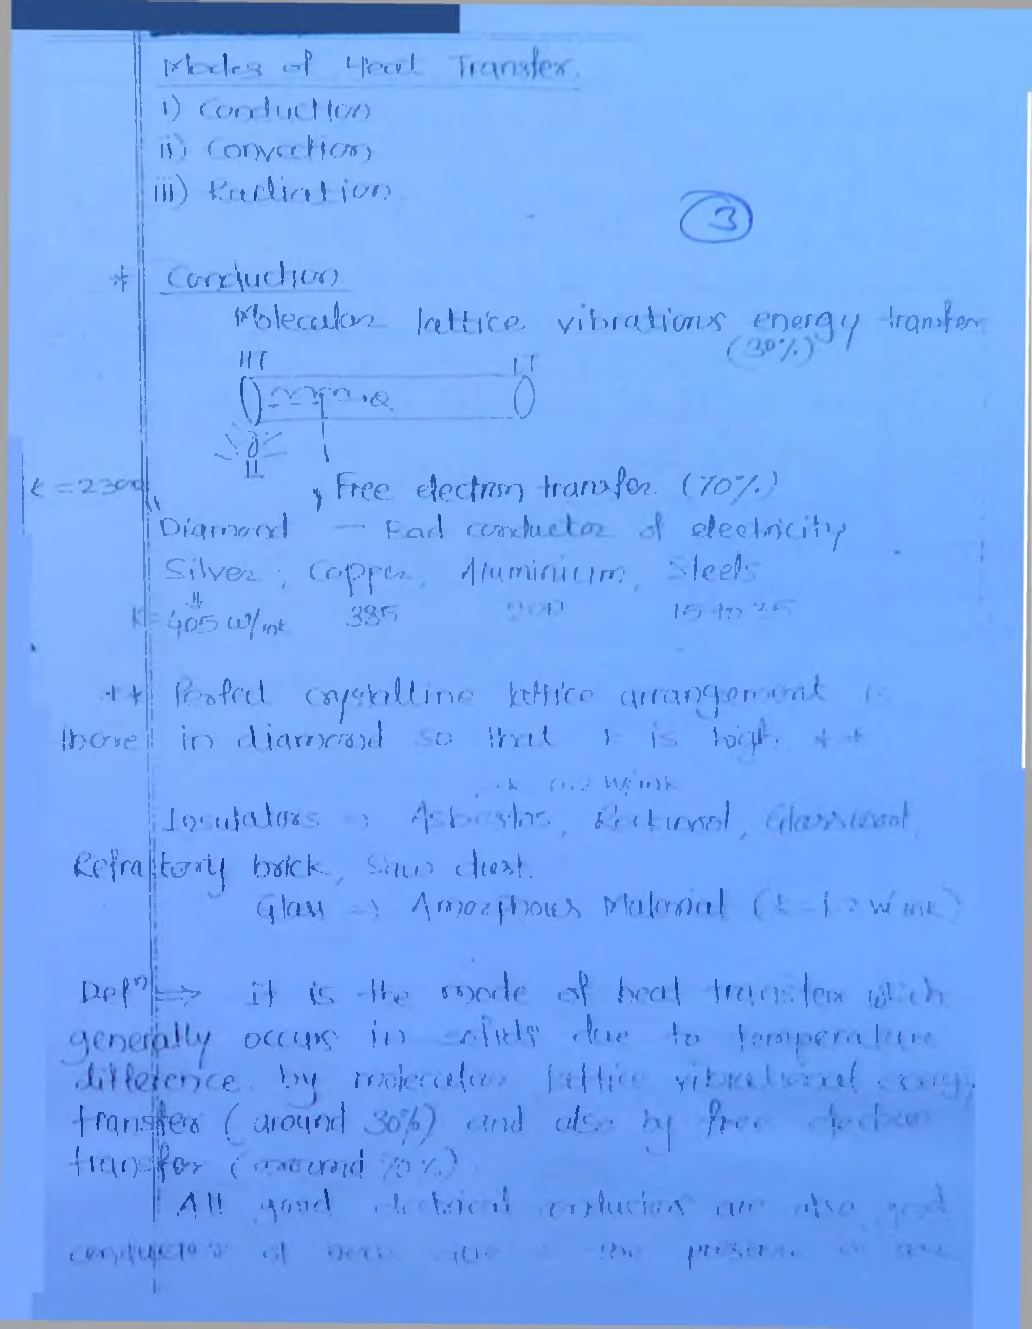 Modes of Heat Transfer.
i) Conduction
ii) Convection
iii) Radiation
3
* Conduction
Molecular lattice vibrations energy transfer
(30%)
HT LT
Q
Free electron transfer (70%)
k = 2300
Diamond — Bad conductor of electricity
Silver, Copper, Aluminium, Steels
k = 405 W/mk 385 200 15 to 25
** Perfect crystalline lattice arrangement is
there in diamond so that k is high **
k 0.2 W/mk
Insulators ⇒ Asbestos, Rockwool, Glasswool,
Refractory brick, Saw dust.
Glass ⇒ Amorphous Material (k = 1.2 W/mk)
Defn ⇒ it is the mode of heat transfer which
generally occurs in solids due to temperature
difference by molecular lattice vibrational energy
transfer (around 30%) and also by free electron
transfer (around 70%)
All good electrical conductors are also good
conductors of heat due to the presence of free